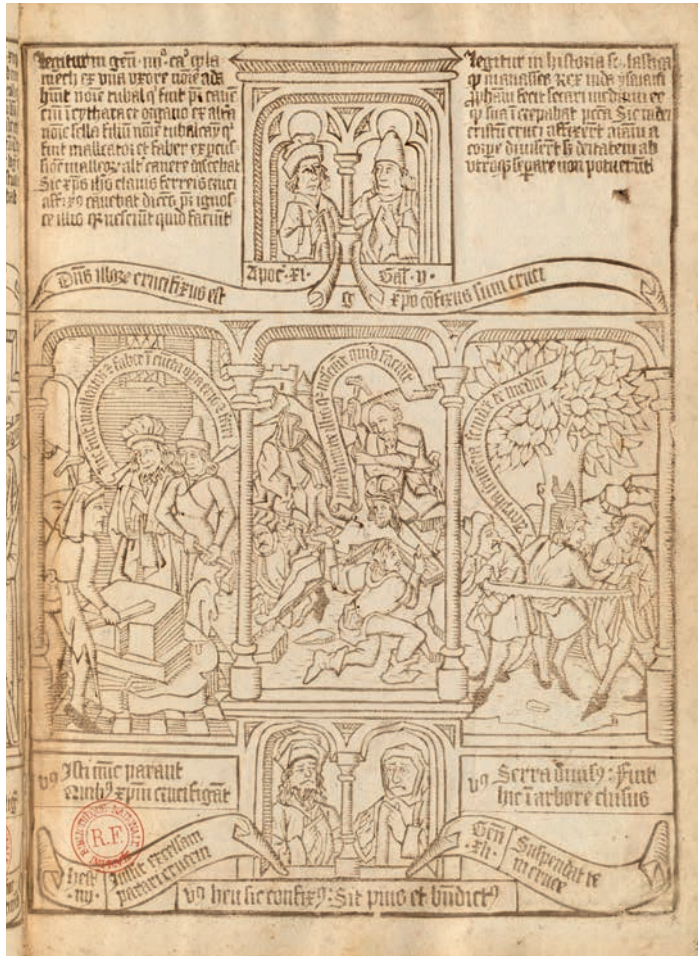 Legitur in gen̄ · iiij° · ca° ꝙ la
mech ex vna vxore noīe ada
hūit noīe tubal
cin̄ ī cythara et organo ex altā
noīe sella filiū noīe tubalcay
fuit malleator et faber
canere discebat
Sic xp̄s clauis ferreis cruci
affixꝰ canebat dicēs pr̄ ignos
ce illis qꝛ nesciūt quid faciūt
Legitur in historia
ꝙ manasses Rex iuda ysaiam
ꝓpham fecit secari mediū eo
ꝙ sua īcrepabat pccā Sic iudei
cristū cruci affixerūt aīam a
corpe diuiserūt s; deitatem ab
vtroꝙ separe non potuerūt
Apoc̄ · xi ·
Gal̄ · ij ·
Dn̄s illoꝝ crucifixus est
g
xp̄o cōfixus sum cruci
hic fuit malleator et faber ī cūcta opa eris et ferri
pater ignosce illis qꝛ nesciūt quid faciūt
secuit de mediū
vꝰ Isti nūc parant
Quibꝰ xp̄m crucifigāt
vꝰ Serra diuisꝰ : Fuit
hic ī arbore clusus
hest̄
· iiij ·
Iussit excelsam
parari crucem
Gen̄
· xli ·
Suspendat te
in cruce
vꝰ heu sic confixꝰ : Sit pius et bn̄dictꝰ
R.F.